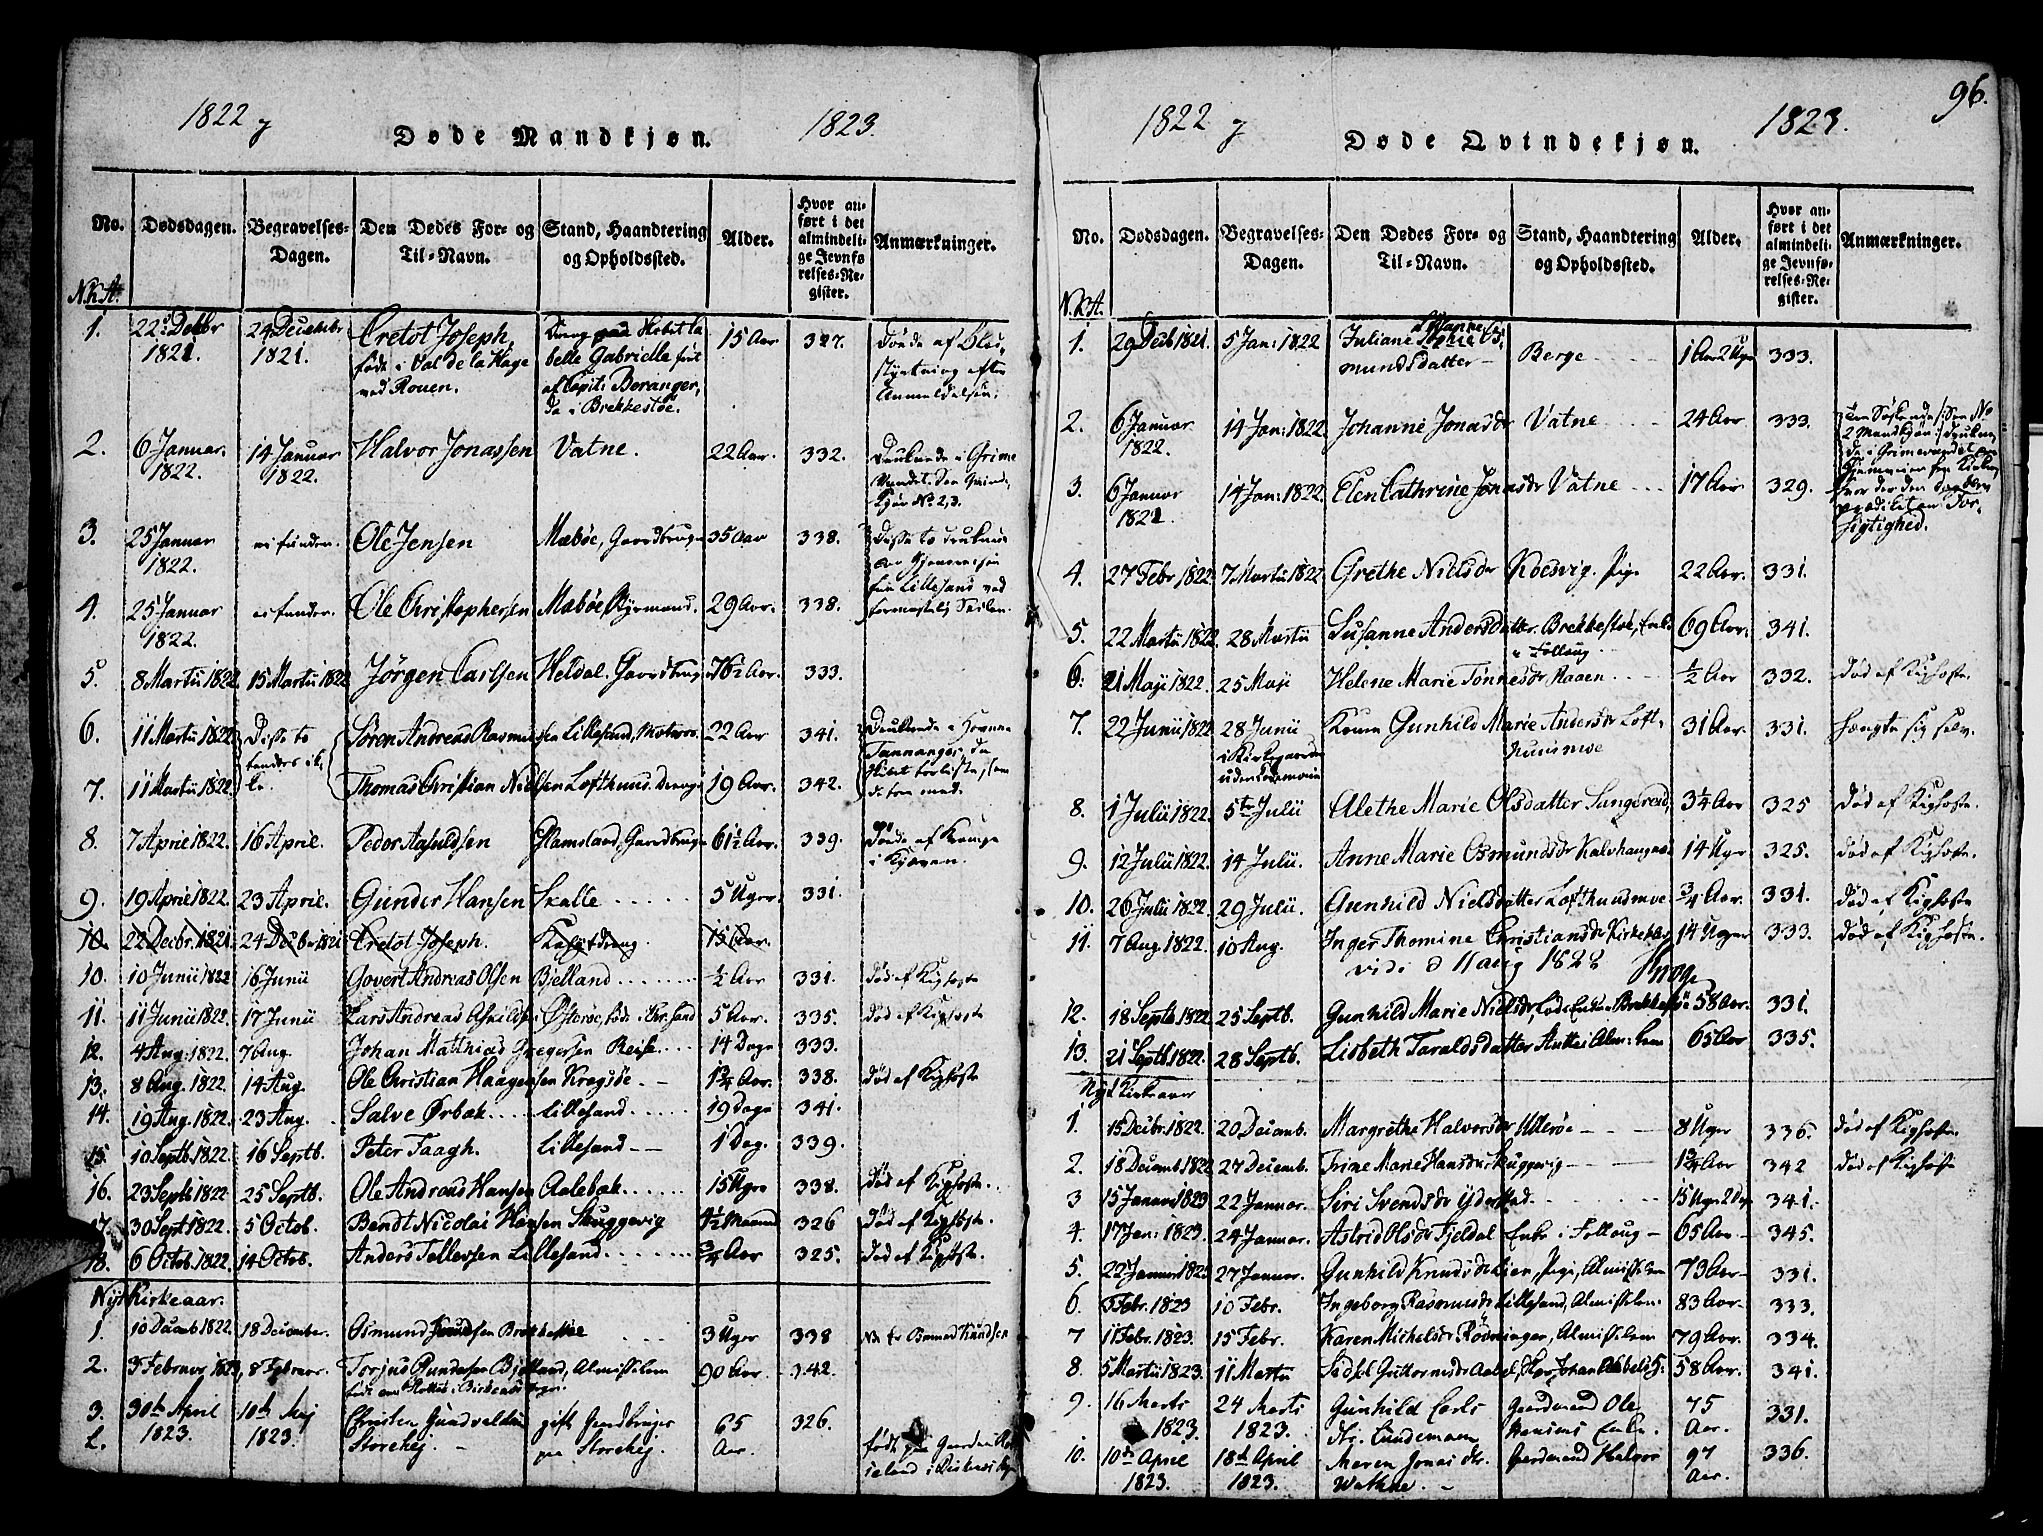 1822 & 1823.
Døde Mandkjøn.
No. Dødsdagen. Begravelses-Dagen. Den Dødes For- og Til-Navn. Stand, Haandtering og Opholdssted. Alder. Hvor anført i det almindelige Jevnførelses-Register. Anmærkninger.
N.K.A.
1. 22 Decbr 1821. 24 Decembr 1821. Cretot Joseph, født i Val de la Hage ved Rouen. belle Gabrielle ført af Capit: Beranger, da i Brekkestøe. 15 Aar 327. Døde af
2. 6 Januar. 1822. 14 Januar 1822. Halvor Jonassen Vatne. 22 Aar. 332. Druknede i Grime Vandet. See Qvind-Kjøn No 2, 3.
3. 25 Januar 1822. ei funden. Ole Jensen Mæbøe, Gaardbruger 35 Aar 338. Disse to druknede
4. 25 Januar 1822. ei funden. Ole Christophersen Mæbøe, Styrmand. 29 Aar. 338. for Lillesand ved
5. 8 Martii 1822. 15 Martii 1822 Jørgen Carlsen Heldal. Gaardbruger 76½ Aar. 333.
6. 11 Martii 1822. Disse to Søren Andreas Rasmussen Lillesand, Matros. 22 Aar 341. Druknede i Havnen
7. 11 Martii 1822. Thomas Christian Nielsen Lofthuus. Dreng 19 Aar. 342.
8. 7 April 1822. 16 April. Peder Aasuldsen Glamsland, Gaardbruger 61½ Aar. 339. Døde af
9. 19 April 1822. 23 April. Gunder Hansen Skalle 5 Uger 331.
10. 22 Decbr. 1821. 24 Decbr 1821 Cretot Joseph. Kahytdreng. 15 Aar.
10. 10 Junii 1822 16 Junii Govert Andreas Olsen Bjelland ½ Aar 331. Død af Kighoste
11. 11 Junii 1822. 17 Junii Lars Andreas 5 Aar. 335. Død af Kighoste
12. 4 Aug. 1822. 7 Aug. Johan Matthias Gregersen Reise 14 Dage 333.
13. 8 Aug. 1822. 14 Aug. Ole Christian Haagensen Kragsøe 1¾ Aar. 338. Død af Kighoste
14. 19 Aug. 1822. 23 Aug. Salve Ørbak Lillesand 19 Dage 341.
15. 10 Septb. 1822. 16 Septb. Peter Taagh. Lillesand 1 Dag. 339.
16. 23 Septb 1822 25 Septb. Ole Andreas Hansen Aalebæk 15 Uger 338. Død af Kighoste
17. 30 Sept. 1822. 5 Octob. Bendt Nicolai Hansen Skuggevig 4½ Maaned 326 Død af Kighoste.
18. 6 Octob. 1822. 14 Octob. Anders Tellefsen Lillesand ¾ Aar 325. Død af Kighoste.
Nyt Kirkeaar.
1. 10 Decemb 1822. 18 December. Osmund Knudsen Brekkestøe 3 Uger 338 NB Er Osmund Knudsen
2. 3 Februar 1823, 8 Februar. Torjus Gundersen Bjelland, Almisselem 90 Aar 342.
3. 30te April 1823. 10de Maj 1823. Christen Gundvaldsen Storehej. gift Gaardbruger paa Storehej. 65 Aar. 326. født paa Gaarden
1822 & 1823. 96.
Døde Qvindekjøn.
No. Dødsdagen. Begravelses-Dagen. Den Dødes For- og Til-Navn. Stand, Haandtering og Opholdssted. Alder. Hvor anført i det almindelige Jevnførelses-Register. Anmærkninger.
N.K.A.
1. 29 Decb 1821. 5 Jan: 1822 Juliane Susanne Sophie Osmundsdatter Berge 1 Aar 2 Uger 333.
2. 6 Januar 1822. 14 Jan: 1822. Johanne Jonasdr Vatne 24 Aar 333. Tre Søskende /: See No 2 Mandkjøn :/ druknede i Grimevandet
3. 6 Januar 1822. 14 Jan: 1822. Elen Cathrine Jonasdr Vatne 17 Aar 329.
4. 27 Febr 1822. 7 Martii 1822 Grethe Nielsdr Koesvig. Pige 22 Aar. 331.
5. 22 Martii 1822. 28 Martii Susanne Andersdatter. Brekkestøe, Enke i Follaug 69 Aar. 341.
6. 21 Maji 1822. 25 Maji Helene Marie Tønnesdr Aaen ½ Aar 332. Død af Kighoste.
7. 22 Junii 1822 28 Junii i Kirkegaarden uden Ceremonie Konen Gunhild Marie Andersdr Lofthuusmoe 31 Aar. 331. hængte sig selv.
8. 1 Julii 1822. 5te Julii Alethe Marie Olsdatter Sangereid 3¼ Aar 325 Død af Kighoste.
9. 12 Julii 1822. 14 Julii. Anne Marie Osmundsdr Kalvhauge 14 Uger 325. Død af Kighoste.
10. 26 Julii 1822. 29 Julii. Gunhild Nielsdatter Lofthuusmoe ¾ Aar. 331. Død af Kighoste
11. 7 Aug. 1822. 10 Aug. Inger Thomine Christiansdr 14 Uger 333. Død af Kighoste.
vidi d 11 aug 1822
12. 18 Septb 1822. 25 Septb. Gunhild Marie Nielsdr, Brekkestøe 58 Aar. 331.
13. 21 Septb. 1822. 28 Septb. Lisbeth Taraldsdatter Alm: Lem 65 Aar 335.
Nyt Kirkeaar
1. 15 Decbr. 1822. 20 Decemb. Margrethe Halvorsdr Ulerøe 8 Uger 336. Død af Kighoste.
2. 18 Decemb 1822 27 Decemb. Trine Marie Hansdr Skuggevig 1¾ Aar 342 Død af Kighoste
3 15 Januar 1823 22 Januar. Siri Svendsdr 15 Uger 2 Dage 341.
4. 17 Jan: 1823. 24 Januar. Astrid Olsdr Fjeldal Enke i Follaug 65 Aar 345.
5. 22 Januar 1823 27 Januar. Gunhild Knudsdr Lien, Pige, Almisselem 73 Aar 331.
6. 5 Febr. 1823 10 Febr. Ingeborg Rasmusdr Lillesand, Almisselem: 83 Aar 333.
7 11 Febr. 1823. 15 Febr. Karen Michelsdr Rødninger, Almisselem 79 Aar. 334.
8. 5 Martii 1823. 11 Martii Sidsel Guttormsdr 58 Aar. 341.
9. 16 Marts 1823. 24 Marts 1823. Gunhild Carlsdtr. Lundemoen Gaardmand Ole Enke. 75 Aar. 331.
10. 10de April 1823. 18de April 1823. Maren Jonas dtr. Wathne. Gaardmand Halvor 97 Aar. 336.